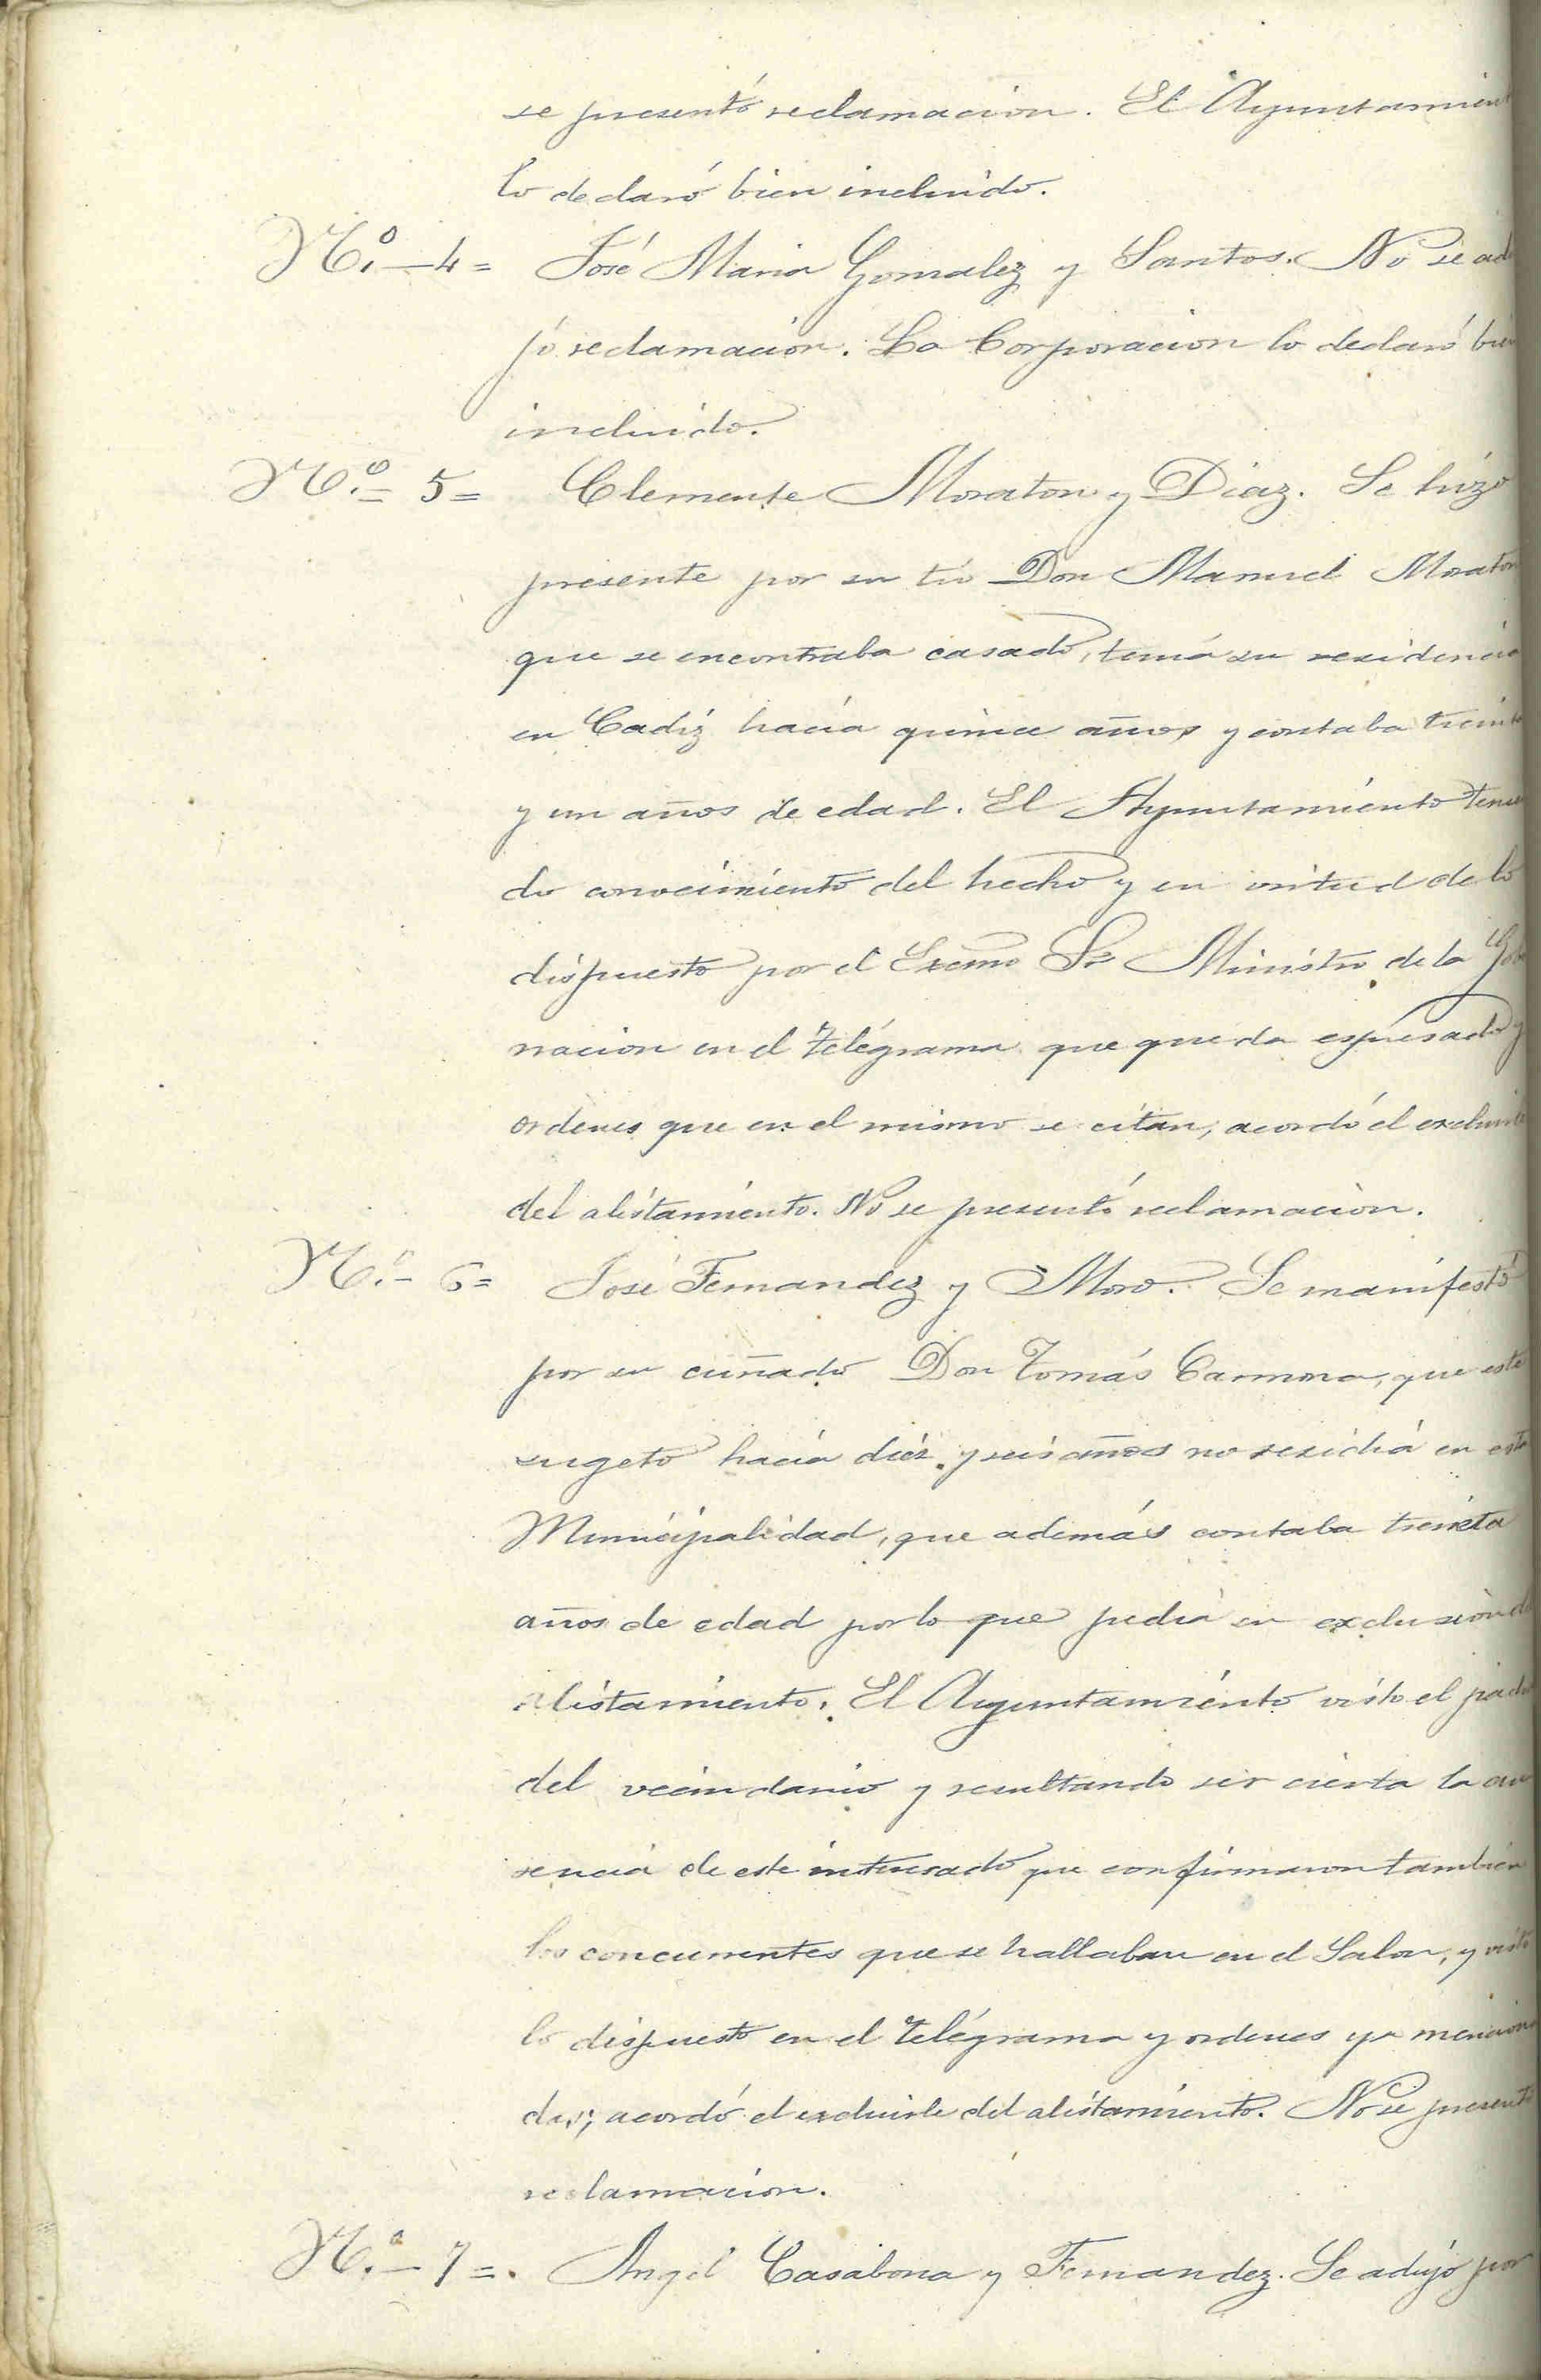 se presentó reclamacion. El Ayuntamient
lo declaró bien incluido.
N.º - 4 = José Maria Gonzalez y Santos. No se adu
jó reclamación. La Corporacion lo declaró bien
incluido.
N.º - 5 = Clemente Moraton y Diaz. Se hizo
presente por su tio Don Manuel Moraton
que se encontraba casado, tenia su residencia
en Cadiz hacia quince años y contaba treinta
y un años de edad. El Ayuntamiento tenien
do conocimiento del hecho y en virtud de lo
dispuesto por el Excmo Sr Ministro de la Gober
nacion en el telégrama que queda espresado y
ordenes que en el mismo se citan, acordó el excluirle
del alistamiento. No se presentó reclamacion.
N.º - 6 = José Fernandez y Moro. Se manifestó
por su cuñado Don Tomás Carmona, que este
sugeto hacia diez y seis años no residia en esta
Municipalidad, que además contaba treinta
años de edad por lo que pedia su exclusion del
alistamiento. El Ayuntamiento visto el padron
del vecindario y resultando ser cierta la au
sencia de este interesado que confirmaron tambien
los concurrentes que se hallaban en el Salon, y visto
lo dispuesto en el telégrama y ordenes ya menciona
das; acordó el excluirle del alistamiento. No se presentó
reclamacion.
N.º - 7 = . Angel Casabona y Fernandez. Se adujo por